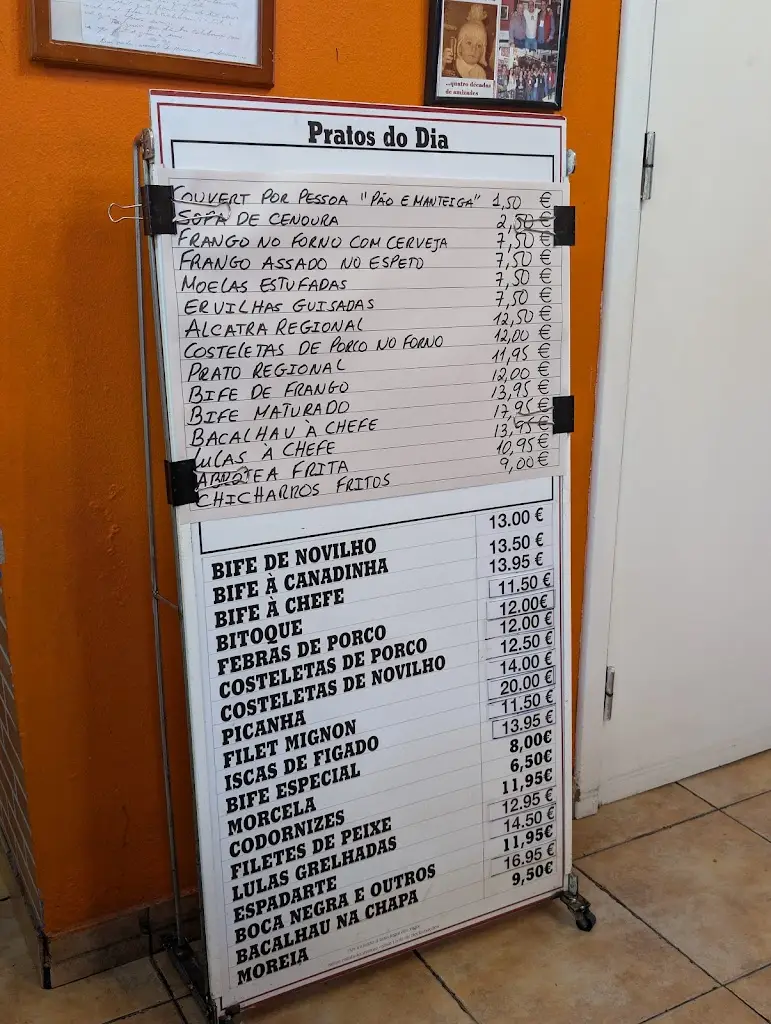 ...quatro décadas
de amizades
Pratos do Dia
COUVERT POR PESSOA "PÃO E MANTEIGA" 1,50 €
SOPA DE CENOURA 2,50 €
FRANGO NO FORNO COM CERVEJA 7,50 €
FRANGO ASSADO NO ESPETO 7,50 €
MOELAS ESTUFADAS 7,50 €
ERVILHAS GUISADAS 7,50 €
ALCATRA REGIONAL 12,50 €
COSTELETAS DE PORCO NO FORNO 12,00 €
PRATO REGIONAL 11,95 €
BIFE DE FRANGO 12,00 €
BIFE MATURADO 13,95 €
BACALHAU À CHEFE 17,95 €
LULAS À CHEFE 13,95 €
ABRÓTEA FRITA 10,95 €
CHICHARROS FRITOS 9,00 €
BIFE DE NOVILHO 13.00 €
BIFE À CANADINHA 13.50 €
BIFE À CHEFE 13.95 €
BITOQUE 11.50 €
FEBRAS DE PORCO 12.00€
COSTELETAS DE PORCO 12.00 €
COSTELETAS DE NOVILHO 12.50 €
PICANHA 14.00 €
FILET MIGNON 20.00 €
ISCAS DE FIGADO 11.50 €
BIFE ESPECIAL 13.95 €
MORCELA 8,00€
CODORNIZES 6,50€
FILETES DE PEIXE 11,95€
LULAS GRELHADAS 12.95 €
ESPADARTE 14.50 €
BOCA NEGRA E OUTROS 11,95€
BACALHAU NA CHAPA 16.95 €
MOREIA 9,50€